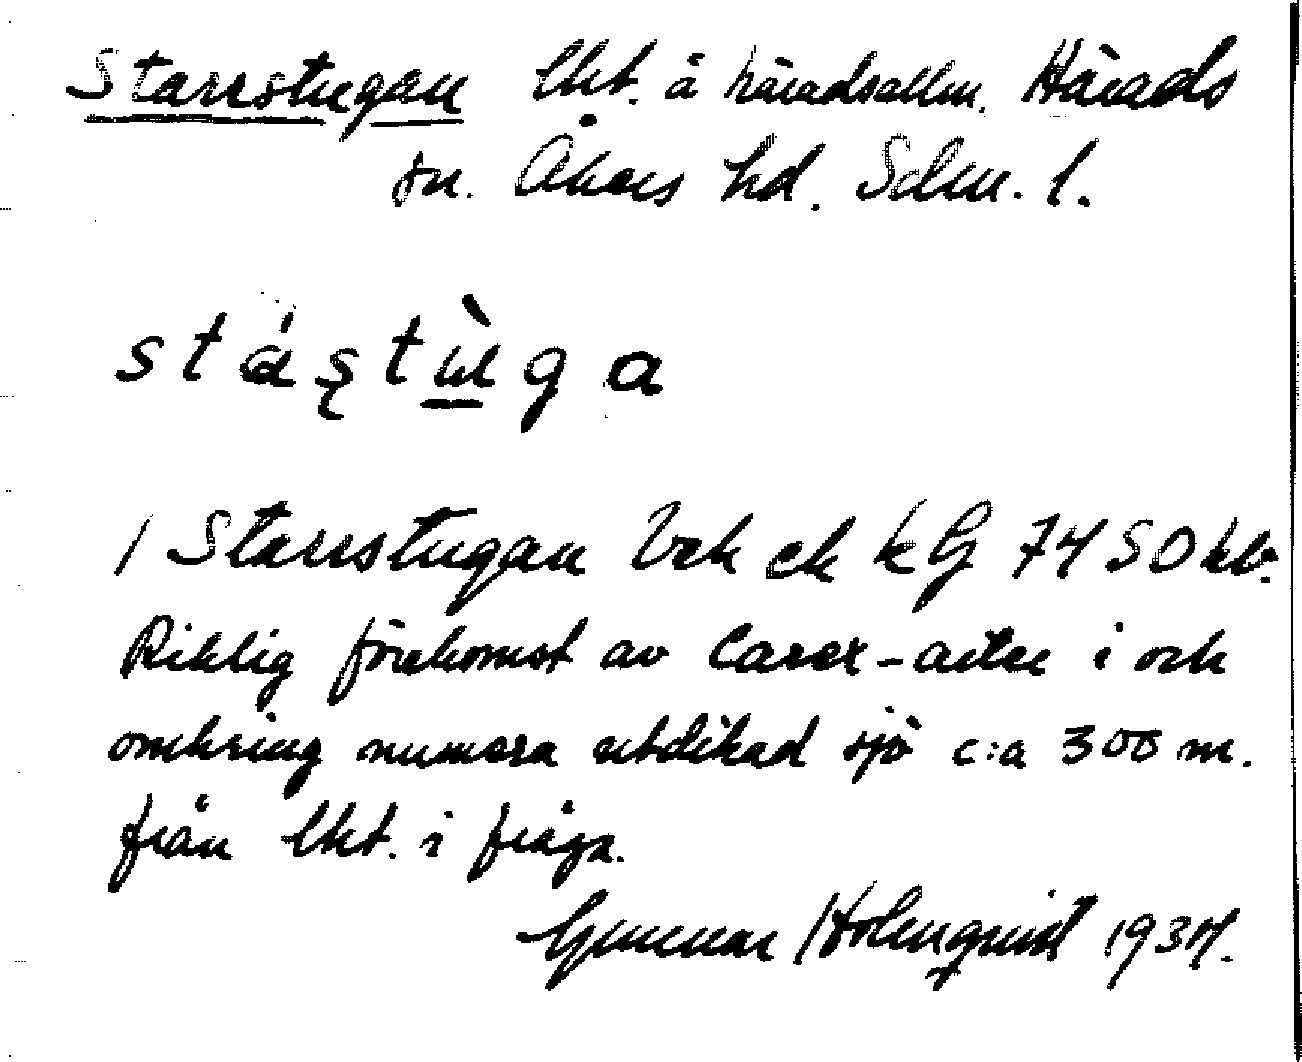 Starrstugan lht. å häradsallm. Härads
sn. Åkers hd. Sdm. l.
stáştùga
/ Starrstugan ek kG 7450 kb.
Riklig förekomst av Carex-arter i och
omkring numera utdikad sjö c:a 300 m.
från lht. i fråga.
Gunnar Holmqvist 1934.